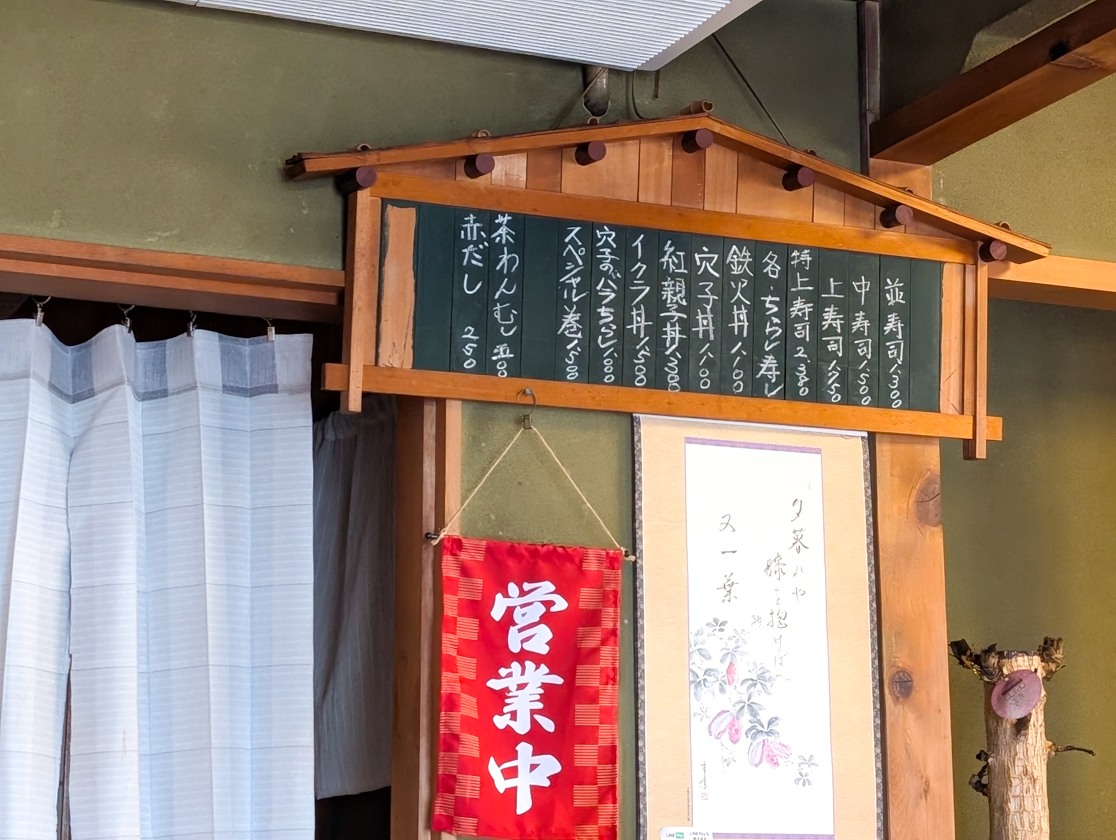 並寿司 1,300
中寿司 1,500
上寿司 1,750
特上寿司 2,380
各、ちらし寿し
鉄火丼 1,100
穴子丼 1,100
紅親子丼 1,500
イクラ丼 1,500
穴子のバラちらし 1,000
スペシャル巻 1,500
茶わんむし
赤だし 250
営業中
夕暮れや
膝を抱けば
又一葉